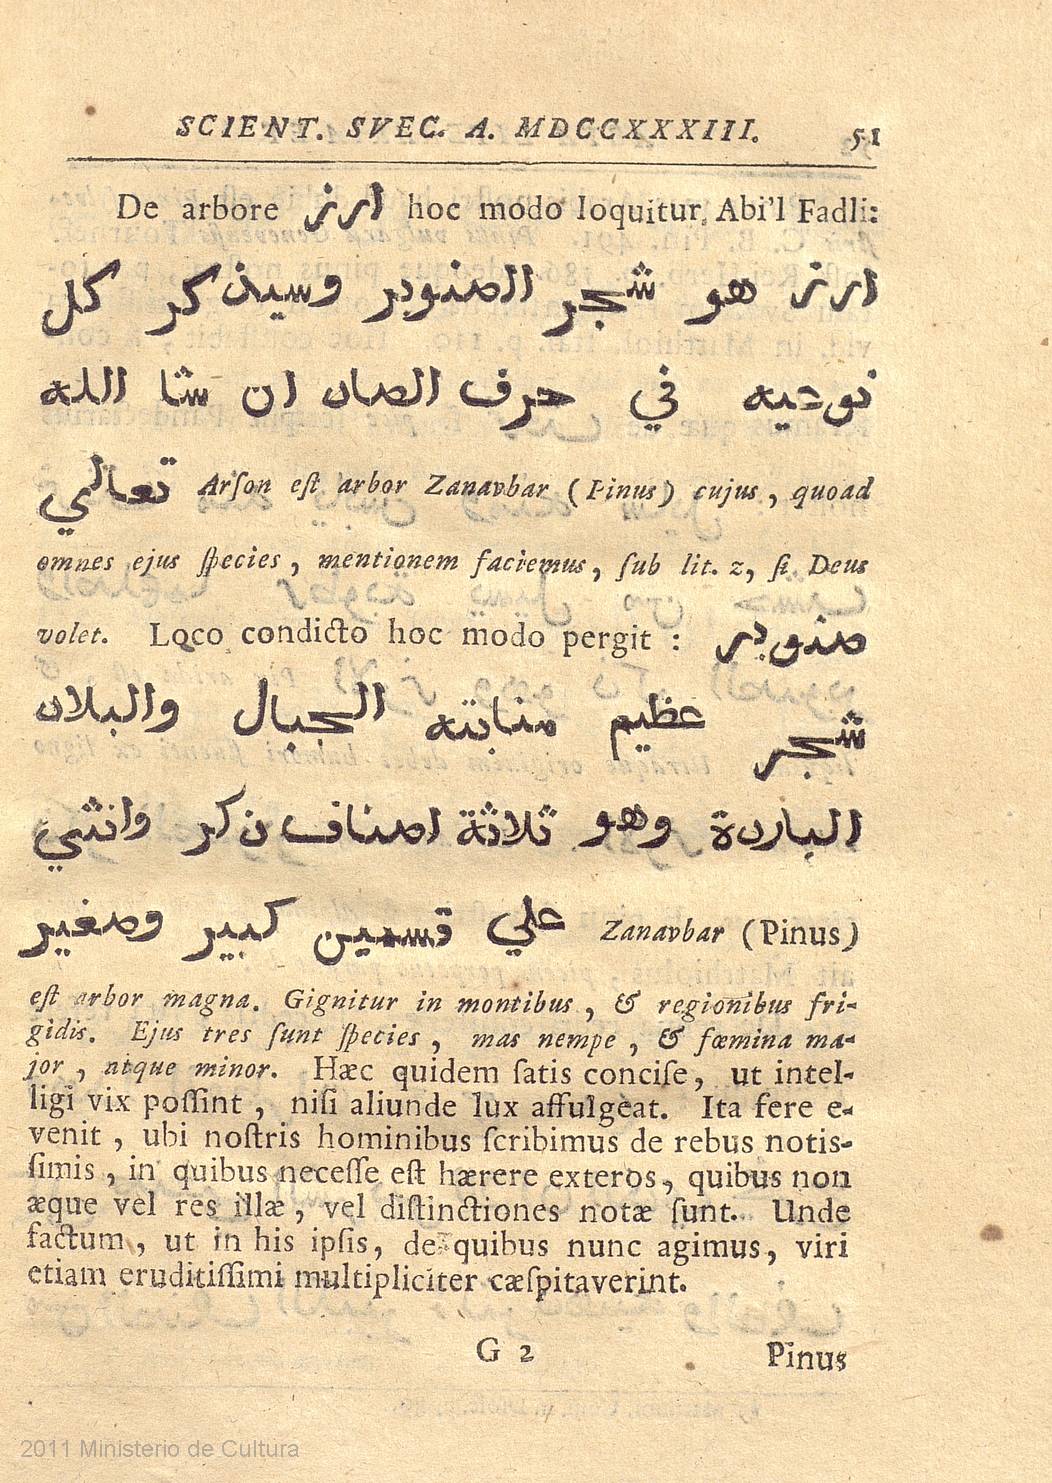 SCIENT. SVEC. A. MDCCXXXIII. 51
De arbore ارز hoc modo loquitur Abi'l Fadli:
ارز هو شجر الصنوبر وسيذكر كل
نوعيه في حرف الصاد ان شا الله
تعالي Arſon eſt arbor Zanavbar (Pinus) cujus, quoad
omnes ejus ſpecies, mentionem faciemus, ſub lit. z, ſi Deus
volet. Loco condicto hoc modo pergit: صنوبر
شجر عظيم منابته الجبال والبلاد
الباردة وهو ثلاثة اصناف ذكر وانثي
علي قسمين كبير وصغير Zanavbar (Pinus)
eſt arbor magna. Gignitur in montibus, & regionibus fri-
gidis. Ejus tres ſunt ſpecies, mas nempe, & fœmina ma-
jor, atque minor. Hæc quidem ſatis conciſe, ut intel-
ligi vix poſſint, niſi aliunde lux affulgeat. Ita fere e-
venit, ubi noſtris hominibus ſcribimus de rebus notiſ-
ſimis, in quibus neceſſe eſt hærere exteros, quibus non
æque vel res illæ, vel diſtinctiones notæ ſunt. Unde
factum, ut in his ipſis, de quibus nunc agimus, viri
etiam eruditiſſimi multipliciter cæſpitaverint.
G 2 Pinus
2011 Ministerio de Cultura